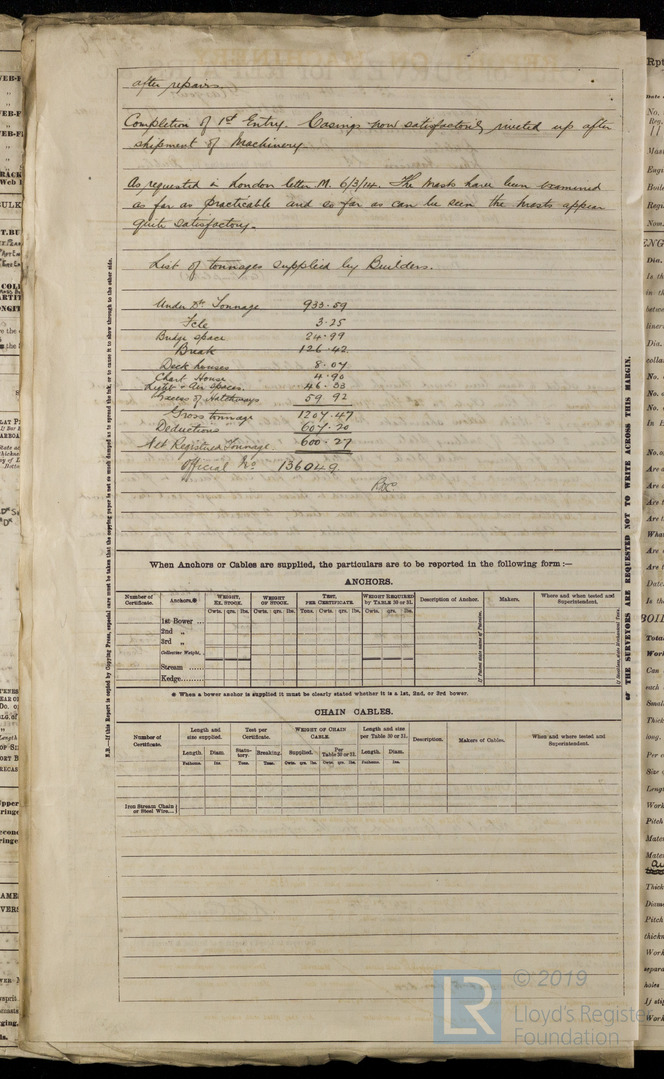 after repairs.
Completion of 1st Entry. Casings now satisfactorily riveted up after
shipment of Machinery
As requested in London letter M. 6/3/14. The masts have been examined
as far as practicable and so far as can be seen the masts appear
quite satisfactory.
List of tonnages supplied by Builders.
Under Dk Tonnage 933.59
Fcle 3.25
Bridge space 24.99
Break 126.42
Deck houses 8.07
Chart House 4.90
Light & Air spaces 46.33
Excess of Hatchways 59 92
Gross tonnage 1207.47
Deductions 607.20
Net Registered Tonnage 600.27
Official No 136049
N.B.—If this Report is copied by Copying Press, especial care must be taken that the copying paper is not so much damped as to spread the ink, or to cause it to show through to the other side.
THE SURVEYORS ARE REQUESTED NOT TO WRITE ACROSS THIS MARGIN.
When Anchors or Cables are supplied, the particulars are to be reported in the following form :—
ANCHORS.
Number of Certificate. Anchors.* WEIGHT, EX. STOCK. WEIGHT OF STOCK. TEST, PER CERTIFICATE. WEIGHT REQUIRED by TABLE 30 or 31. Description of Anchor. Makers. Where and when tested and Superintendent.
Cwts. qrs. lbs. Cwts. qrs. lbs. Tons. Cwts. qrs. lbs. Cwts. qrs. lbs.
1st-Bower ...
2nd „
3rd „
Collective Weight.
Stream ......
Kedge........
* When a bower anchor is supplied it must be clearly stated whether it is a 1st, 2nd, or 3rd bower.
CHAIN CABLES.
Number of Certificate. Length and size supplied. Test per Certificate. WEIGHT OF CHAIN CABLE. Length and size per Table 30 or 31. Description. Makers of Cable. When and where tested and Superintendent.
Length. Diam. Statutory. Breaking. Supplied. Per Table 30 or 31. Length. Diam.
Fathoms. Ins. Tons. Tons. Cwts. qrs. lbs. Cwts. qrs. lbs. Fathoms. Ins.
Iron Stream Chain or Steel Wire...
© 2019
LR
Lloyd's Register
Foundation